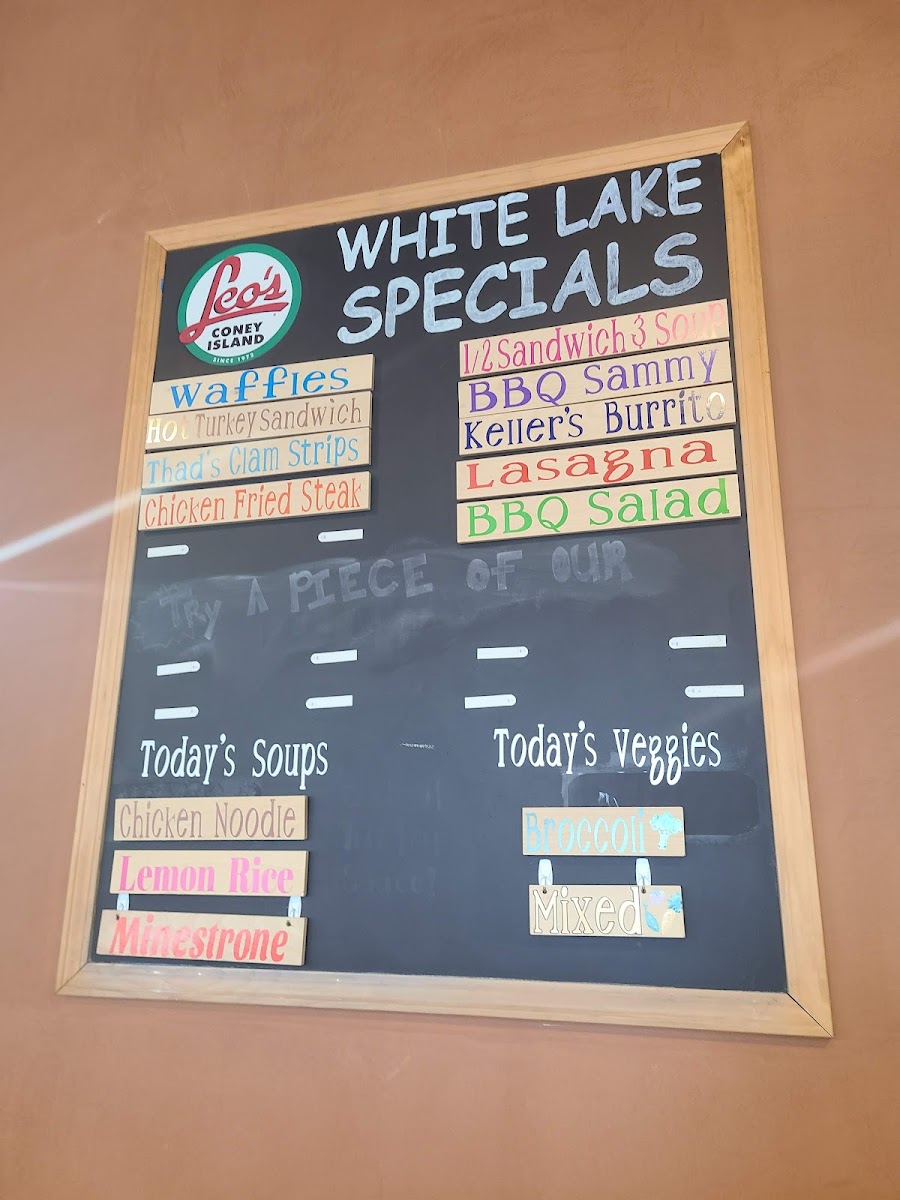 WHITE LAKE
SPECIALS
Leo's
CONEY
ISLAND
SINCE 1972
Waffles
Hot Turkey Sandwich
Thad's Clam Strips
Chicken Fried Steak
1/2 Sandwich & Soup
BBQ Sammy
Keller's Burrito
Lasagna
BBQ Salad
TRY A PIECE OF OUR
Today's Soups
Chicken Noodle
Lemon Rice
Minestrone
Today's Veggies
Broccoli
Mixed